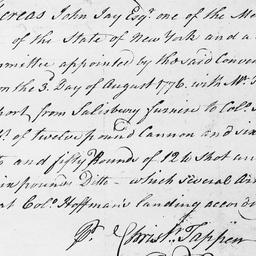 hereas John Jay Esqr. one of the Me
of the State of New York and a
mmittee appointed by the said Conven
on the 3. Day of August 1776. with Mr.
port from Salisbury furnice to Colo.
of twelve pound Cannon and six
and fifty Rounds of 12 lb Shot an
in pounds Ditto — which several Ar
at Colo. Hoffman's landing accordi
Pr. Christr. Tappen